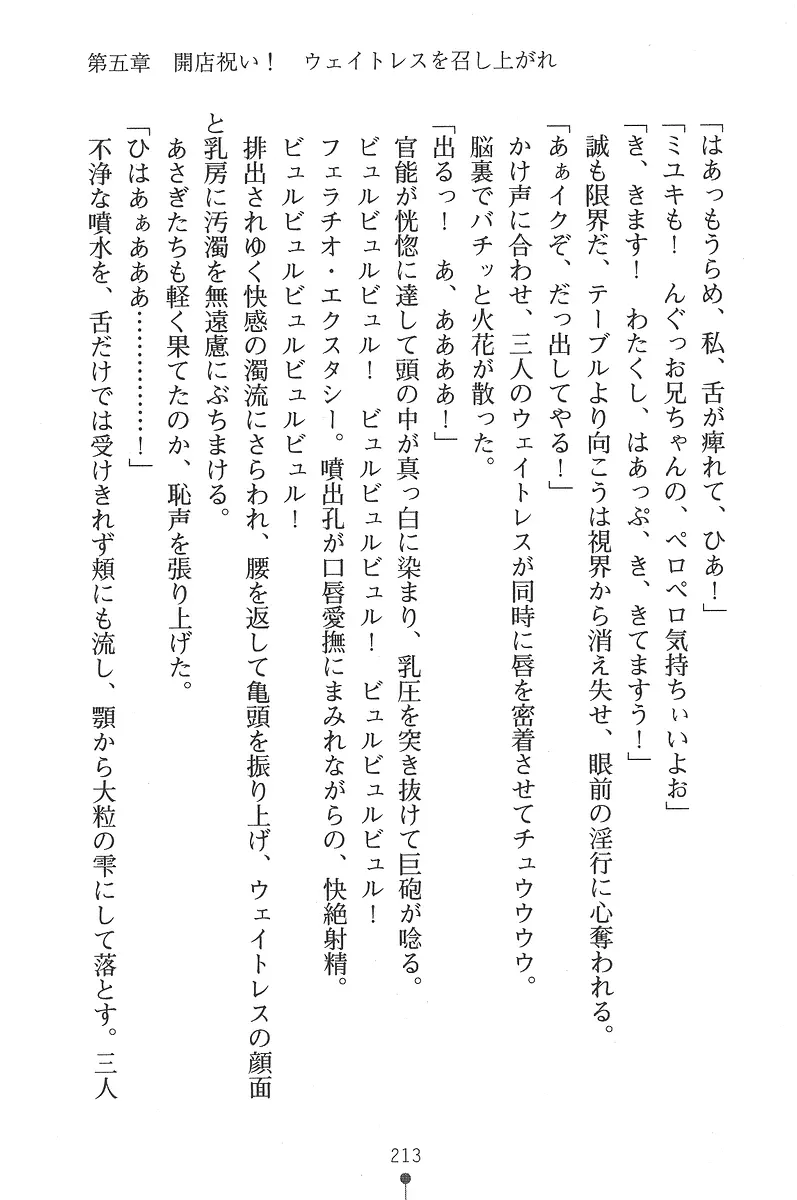 第五章　開店祝い！　ウェイトレスを召し上がれ
「はあっもうらめ、私、舌が痺れて、ひぁ！」
「ミユキも！　んぐっお兄ちゃんの、ペロペロ気持ちぃいよお」
「き、きます！　わたくし、はあっぷ、き、きてますう！」
誠も限界だ、テーブルより向こうは視界から消え失せ、眼前の淫行に心奪われる。
「あぁイクぞ、だっ出してやる！」
かけ声に合わせ、三人のウェイトレスが同時に唇を密着させてチュウウウウ。
脳裏でバチッと火花が散った。
「出るっ！　あ、ああああ！」
官能が恍惚に達して頭の中が真っ白に染まり、乳圧を突き抜けて巨砲が唸る。
ビュルビュルビュル！　ビュルビュルビュル！　ビュルビュルビュル！
フェラチオ・エクスタシー。噴出孔が口唇愛撫にまみれながらの、快絶射精。
ビュルビュルビュルビュルビュル！
排出されゆく快感の濁流にさらわれ、腰を返して亀頭を振り上げ、ウェイトレスの顔面
と乳房に汚濁を無遠慮にぶちまける。
あさぎたちも軽く果てたのか、恥声を張り上げた。
「ひはあぁあああ……………！」
不浄な噴水を、舌だけでは受けきれず頬にも流し、顎から大粒の雫にして落とす。三人
213